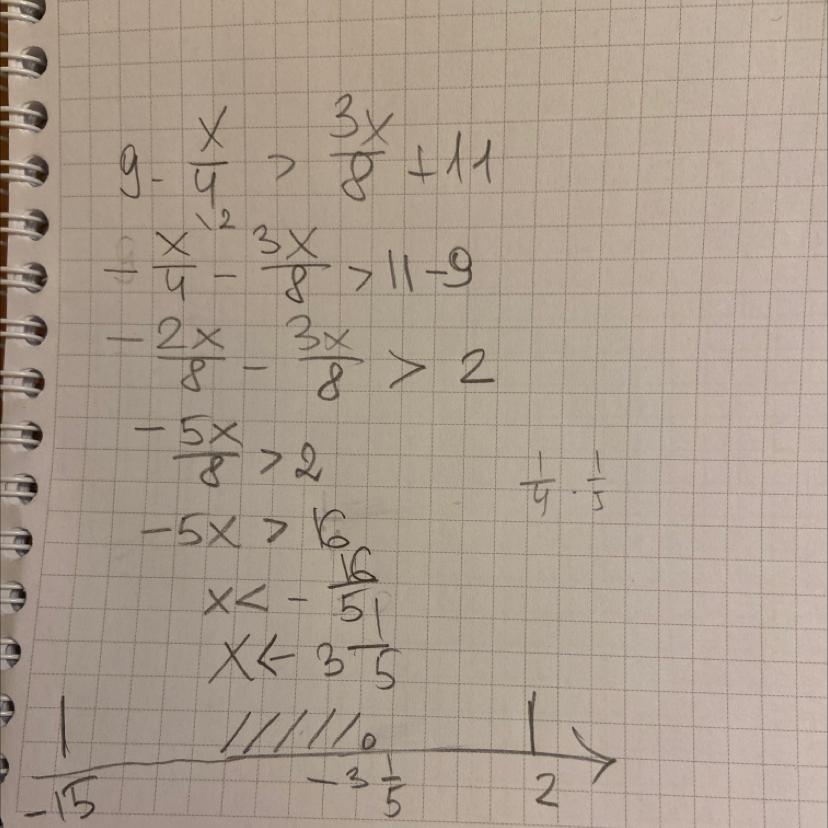 9 - x/4 > 3x/8 + 11
- x/4 \2 - 3x/8 > 11 - 9
- 2x/8 - 3x/8 > 2
- 5x/8 > 2
1/4 · 1/5
-5x > 16
x < - 16/5
x < - 3 1/5
-15 -3 1/5 2